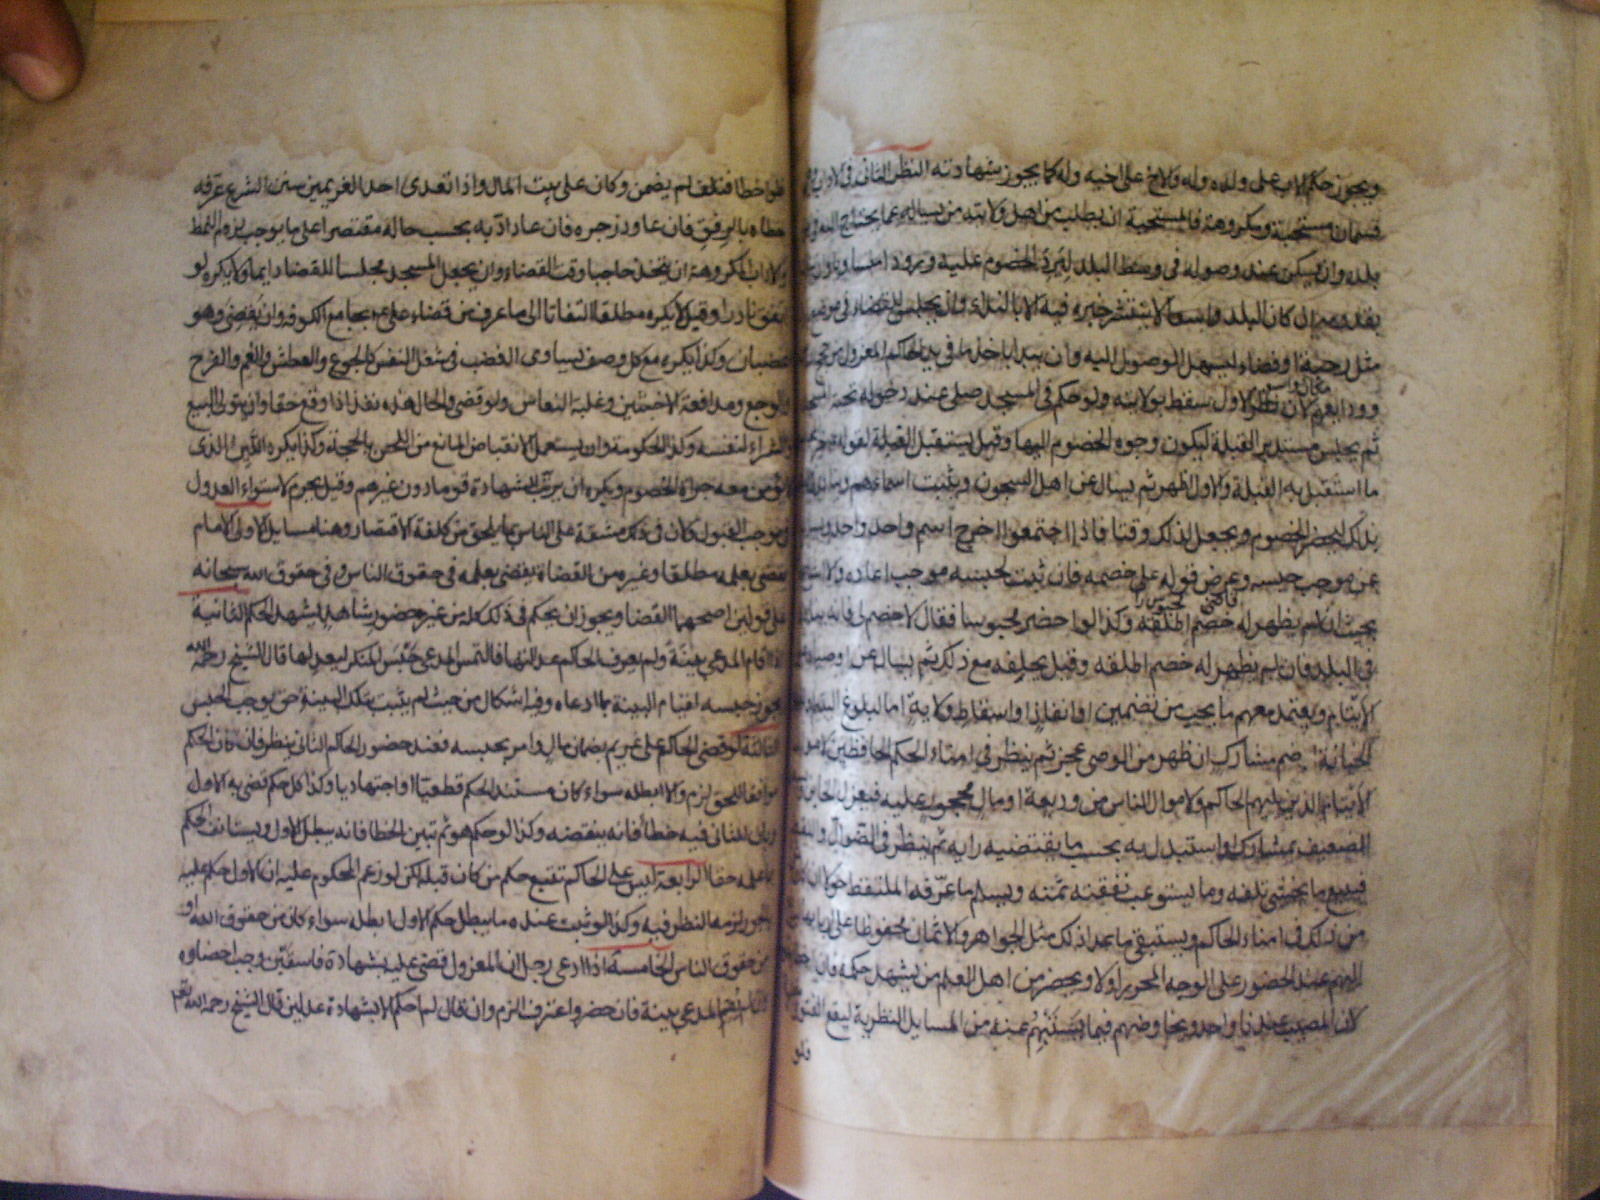 ويجوز حكم الاب على ولده وله والاخ على اخيه وله كما يجوز شهادته النظر الثاني في الاداب
قسمان مستحبة ومكروهة فالمستحبة ان يطلب من اهل ولايته من يساله عما يحتاج اليه في
بلده وان يسكن عند وصوله في وسط البلد ليرد الخصوم عليه ورودا متساويا وان
بقدومه ان كان البلد واسعا لا ينتشر خبره فيه الا بالنداء وان يجلس للقضاء في موضع
مثل رحبة او فضاء ليسهل الوصول اليه وان يبدا باخذ ما في يد الحاكم المعزول من حجج
وودايعهم لان نظر الاول سقط بولايته ولو حكم في المسجد صلى عند دخوله تحية المسجد
ثم يجلس مستدبر القبلة ليكون وجوه الخصوم اليها وقيل يستقبل القبلة لقوله خير
ما استقبل به القبلة والاول اظهر ثم يسال عن اهل السجون ويثبت اسماءهم وينادى
بذلك ليحضر الخصوم ويجعل لذلك وقتا فاذا اجتمعوا اخرج اسم واحد واحد
عن موجب حبسه وعرض قوله على خصمه فان ثبت لحبسه موجب اعاده والا
بحيث ان لم يظهر له خصم اطلقه وكذا لو احضر محبوسا فقال لا خصم لي فانه ينادى
في البلد فان لم يظهر له خصم اطلقه وقيل يحلفه مع ذلك ثم يسال عن اوصياء
الايتام ويعتمد معهم ما يجب من تضمين او انفاذ او اسقاط ولاية اما لبلوغ اليتيم
الخيانة او ضم مشارك ان ظهر من الوصي عجز ثم ينظر في امناء الحكم الحافظين لاموال
الايتام الذين يليهم الحاكم ولاموال الناس من وديعة او مال محجور عليه فيعزل الخاين
الضعيف بمشارك او استبدل به بحسب ما يقتضيه رايه ثم ينظر في الضوال واللقط
فيبيع ما يخشى تلفه وما يستوعب نفقته ثمنه ويسلم ما عرفه الملتقط حولا ان كان
من ذلك في امناء الحاكم ويستبقي ما عدا ذلك مثل الجواهر والاثمان محفوظا على اربابه
اليهم عند الحضور على الوجه المحرر اولا ويحضر من اهل العلم من يشهد حكمه فان اخطا
لان المصيب عندنا واحد ويخاوضهم فيما يستبهم عنه من المسايل النظرية ليقع الفتوى
ولو
ولو اخطا فتلف لم يضمن وكان على بيت المال واذا تعدى احد الغريمين سنن الشرع عرفه
خطاه بالرفق فان عاود زجره فان عاد ادبه بحسب حاله مقتصرا على ما يوجب لزوم النمط
والاداب المكروهة ان يتخذ حاجبا وقت القضاء وان يجعل المسجد مجلسا للقضاء دايما ولا يكره لو
اتفق نادرا وقيل لا يكره مطلقا التفاتا الى ما عرف من قضاء علي ع بجامع الكوفه وان يقضي وهو
غضبان وكذا يكره مع كل وصف يساوي الغضب في شغل النفس كالجوع والعطش والغم والفرح
والوجع ومدافعة الاخبثين وغلبة النعاس ولو قضى والحال هذه نفذ اذا وقع حقا وان يتولى البيع
والشراء لنفسه وكذا الحكومة وان يستعمل الانقباض المانع من اللحن بالحجة وكذا يكره اللين الذي
لا يؤمن معه جراة الخصوم ويكره ان يرتب للشهادة قوما دون غيرهم وقيل يحرم لاستواء العدول
في موجب القبول ولان في ذلك مشقة على الناس بما يلحق من كلفة الاقتصار وهنا مسايل الاولى الامام
يقضي بعلمه مطلقا وغيره من القضاة يقضي بعلمه في حقوق الناس وفي حقوق الله سبحانه
على قولين اصحهما القضا ويجوز ان يحكم في ذلك كله من غير حضور شاهد يشهد الحكم الثانية
اذا اقام المدعي بينة ولم يعرف الحاكم عدالتها فالتمس المدعي حبس المنكر ليعدلها قال الشيخ رحمه الله
يجوز حبسه لقيام البينة بما ادعاه وفيه اشكال من حيث لم يثبت بتلك البينة حق يوجب الحبس
الثالثة لو قضى الحاكم على غريم بضمان مال وامر بحبسه فعند حضور الحاكم الثاني ينظر فان كان الحكم
موافقا للحق لزم والا ابطله سواء كان مستند الحكم قطعيا او اجتهاديا وكذا كل حكم قضى به الاول
وبان للثاني فيه خطا فانه ينقضه وكذا لو حكم هو ثم تبين الخطا فانه يبطل الاول ويستانف الحكم
بما علمه حقا الرابعة ليس على الحاكم تتبع حكم من كان قبله لكن لو زعم المحكوم عليه ان الاول حكم عليه
بالجور لزمه النظر فيه وكذا لو ثبت عنده ما يبطل حكم الاول ابطله سواء كان من حقوق الله او
من حقوق الناس الخامسة اذا ادعى رجل ان المعزول قضى عليه بشهادة فاسقين وجب احضاره
وان لم يقم المدعي بينة فان حضر واعترف الزم وان قال لم احكم الا بشهادة عدلين قال الشيخ رحمه الله